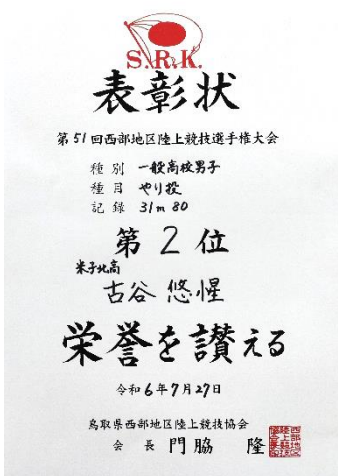 S.R.K.
表彰状
第51回西部地区陸上競技選手権大会
種別 一般高校男子
種目 やり投
記録 31m 80
第2位
米子北高
古谷 悠惺
栄誉を讃える
令和6年7月27日
鳥取県西部地区陸上競技協会
会長 門脇 隆